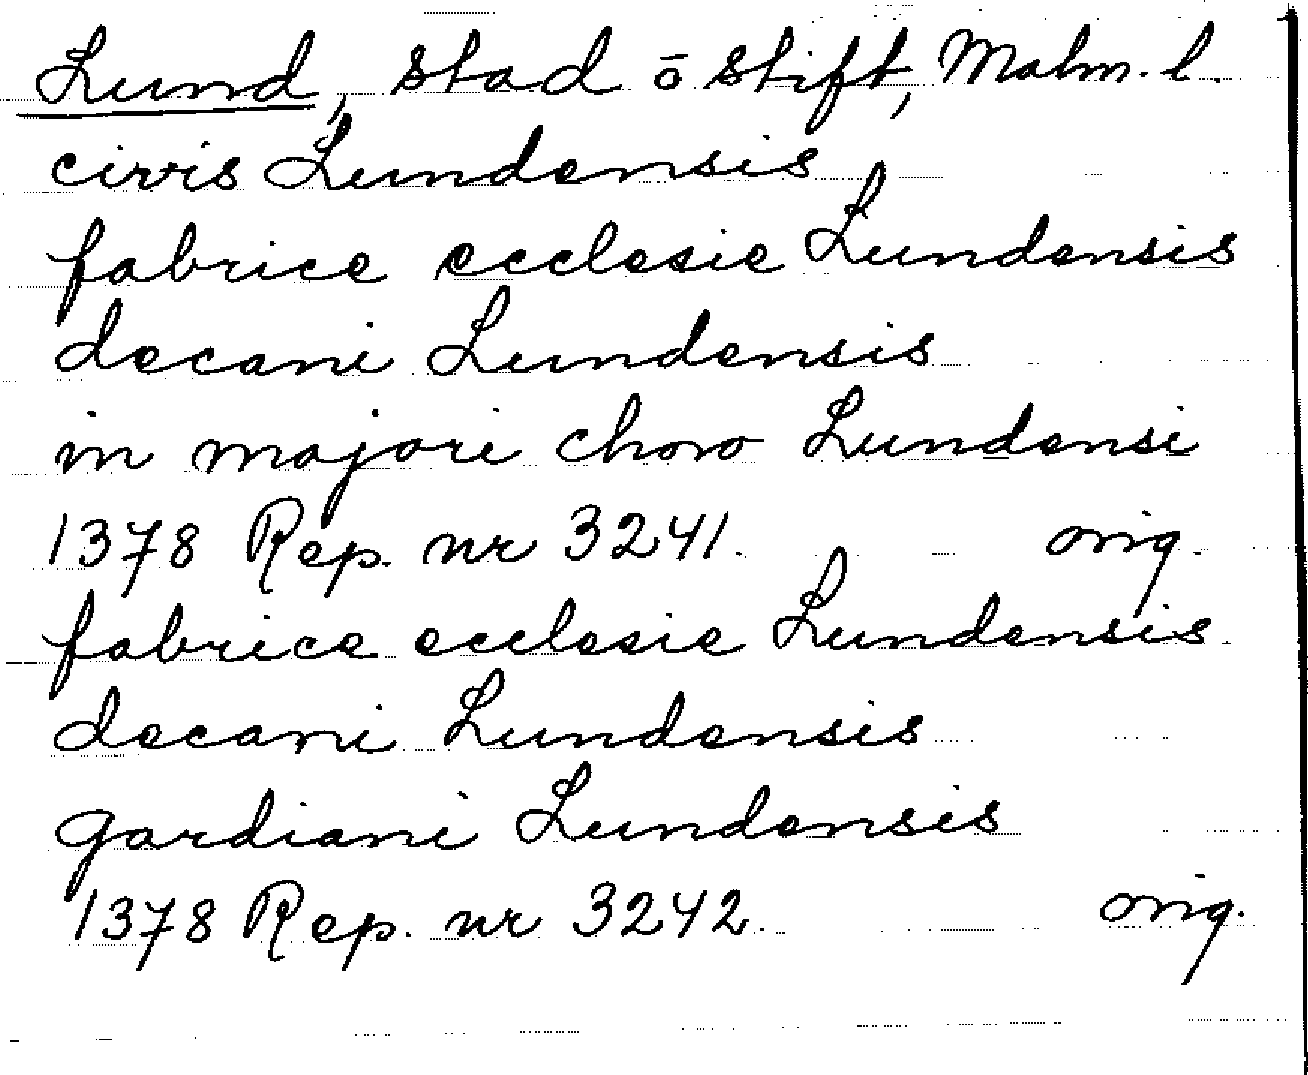 Lund, stad ō stift, Malm. l.
civis Lundensis
fabrice ecclesie Lundensis
decani Lundensis
in majori choro Lundensi
1378 Rep. nr 3241. orig.
fabrice ecclesie Lundensis
decani Lundensis
gardiani Lundensis
1378 Rep. nr 3242. orig.